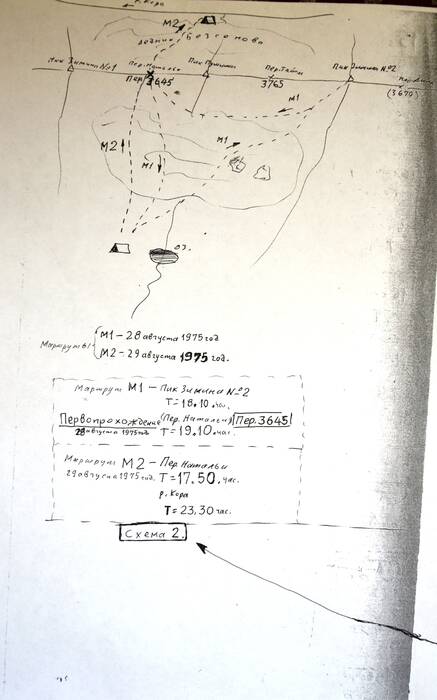 р. Кора
М2
Ледник Безсонова
Пик Зимина №1
Пер. Натальи
Пик Пушкина
Пер. Тайны
Пик Зимина №2
Пер. 3645
3765
(3670)
М1
М2
М1
М1
оз.
Маршруты
М1 – 28 августа 1975 год
М2 – 29 августа 1975 год.
Маршрут М1 – Пик Зимина №2
Т = 18.10. час.
Первопрохождение (Пер. Натальи) Пер. 3645
28 августа 1975 год. Т = 19.10. час.
Маршрут М2 – Пер. Натальи
29 августа 1975 год. Т = 17.50. час.
р. Кора
Т = 23.30 час.
Схема 2.